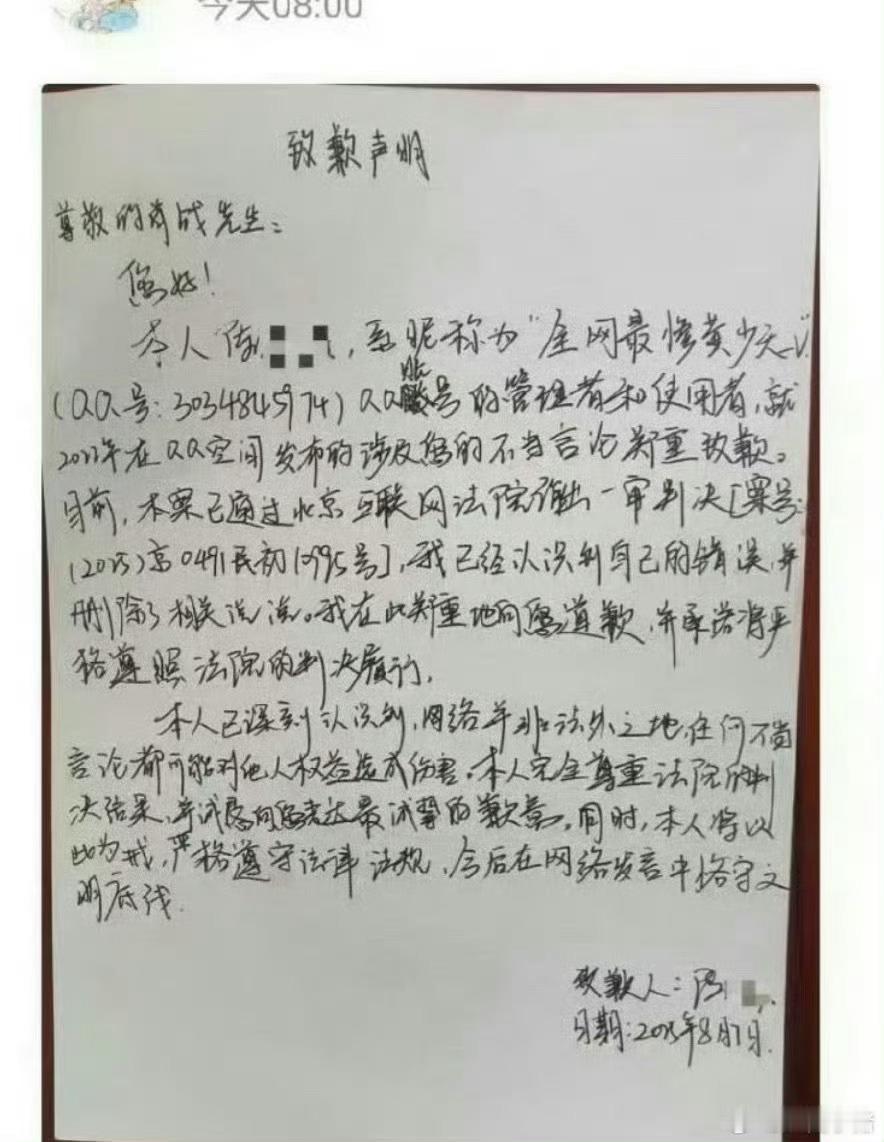 今天08:00
致歉声明
尊敬的肖战先生：
您好！
本人陈，系昵称为“全网最惨黄少天~√”
(QQ号：3034845974)QQ账号的管理者和使用者，就
2022年在QQ空间发布的涉及您的不当言论郑重致歉。
目前，本案已通过北京互联网法院作出一审判决[案号：
(2025)京0491民初10995号]，我已经认识到自己的错误，并
删除了相关说说。我在此郑重地向您道歉，并承诺将严
格遵照法院的判决履行。
本人已深刻认识到，网络并非法外之地，任何不当
言论都可能对他人权益造成伤害。本人完全尊重法院的判
决结果，并诚恳向您表达最诚挚的歉意。同时，本人将以
此为戒，严格遵守法律法规，今后在网络发言中恪守文
明底线.
致歉人：陈
日期：2025年8月7日.